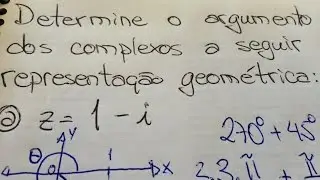 • Determine o argumento
dos complexos a seguir
representação geométrica:
ⓐ z = 1 - i
270° + 45°
y
θ
0
1
x
2.3.π + π